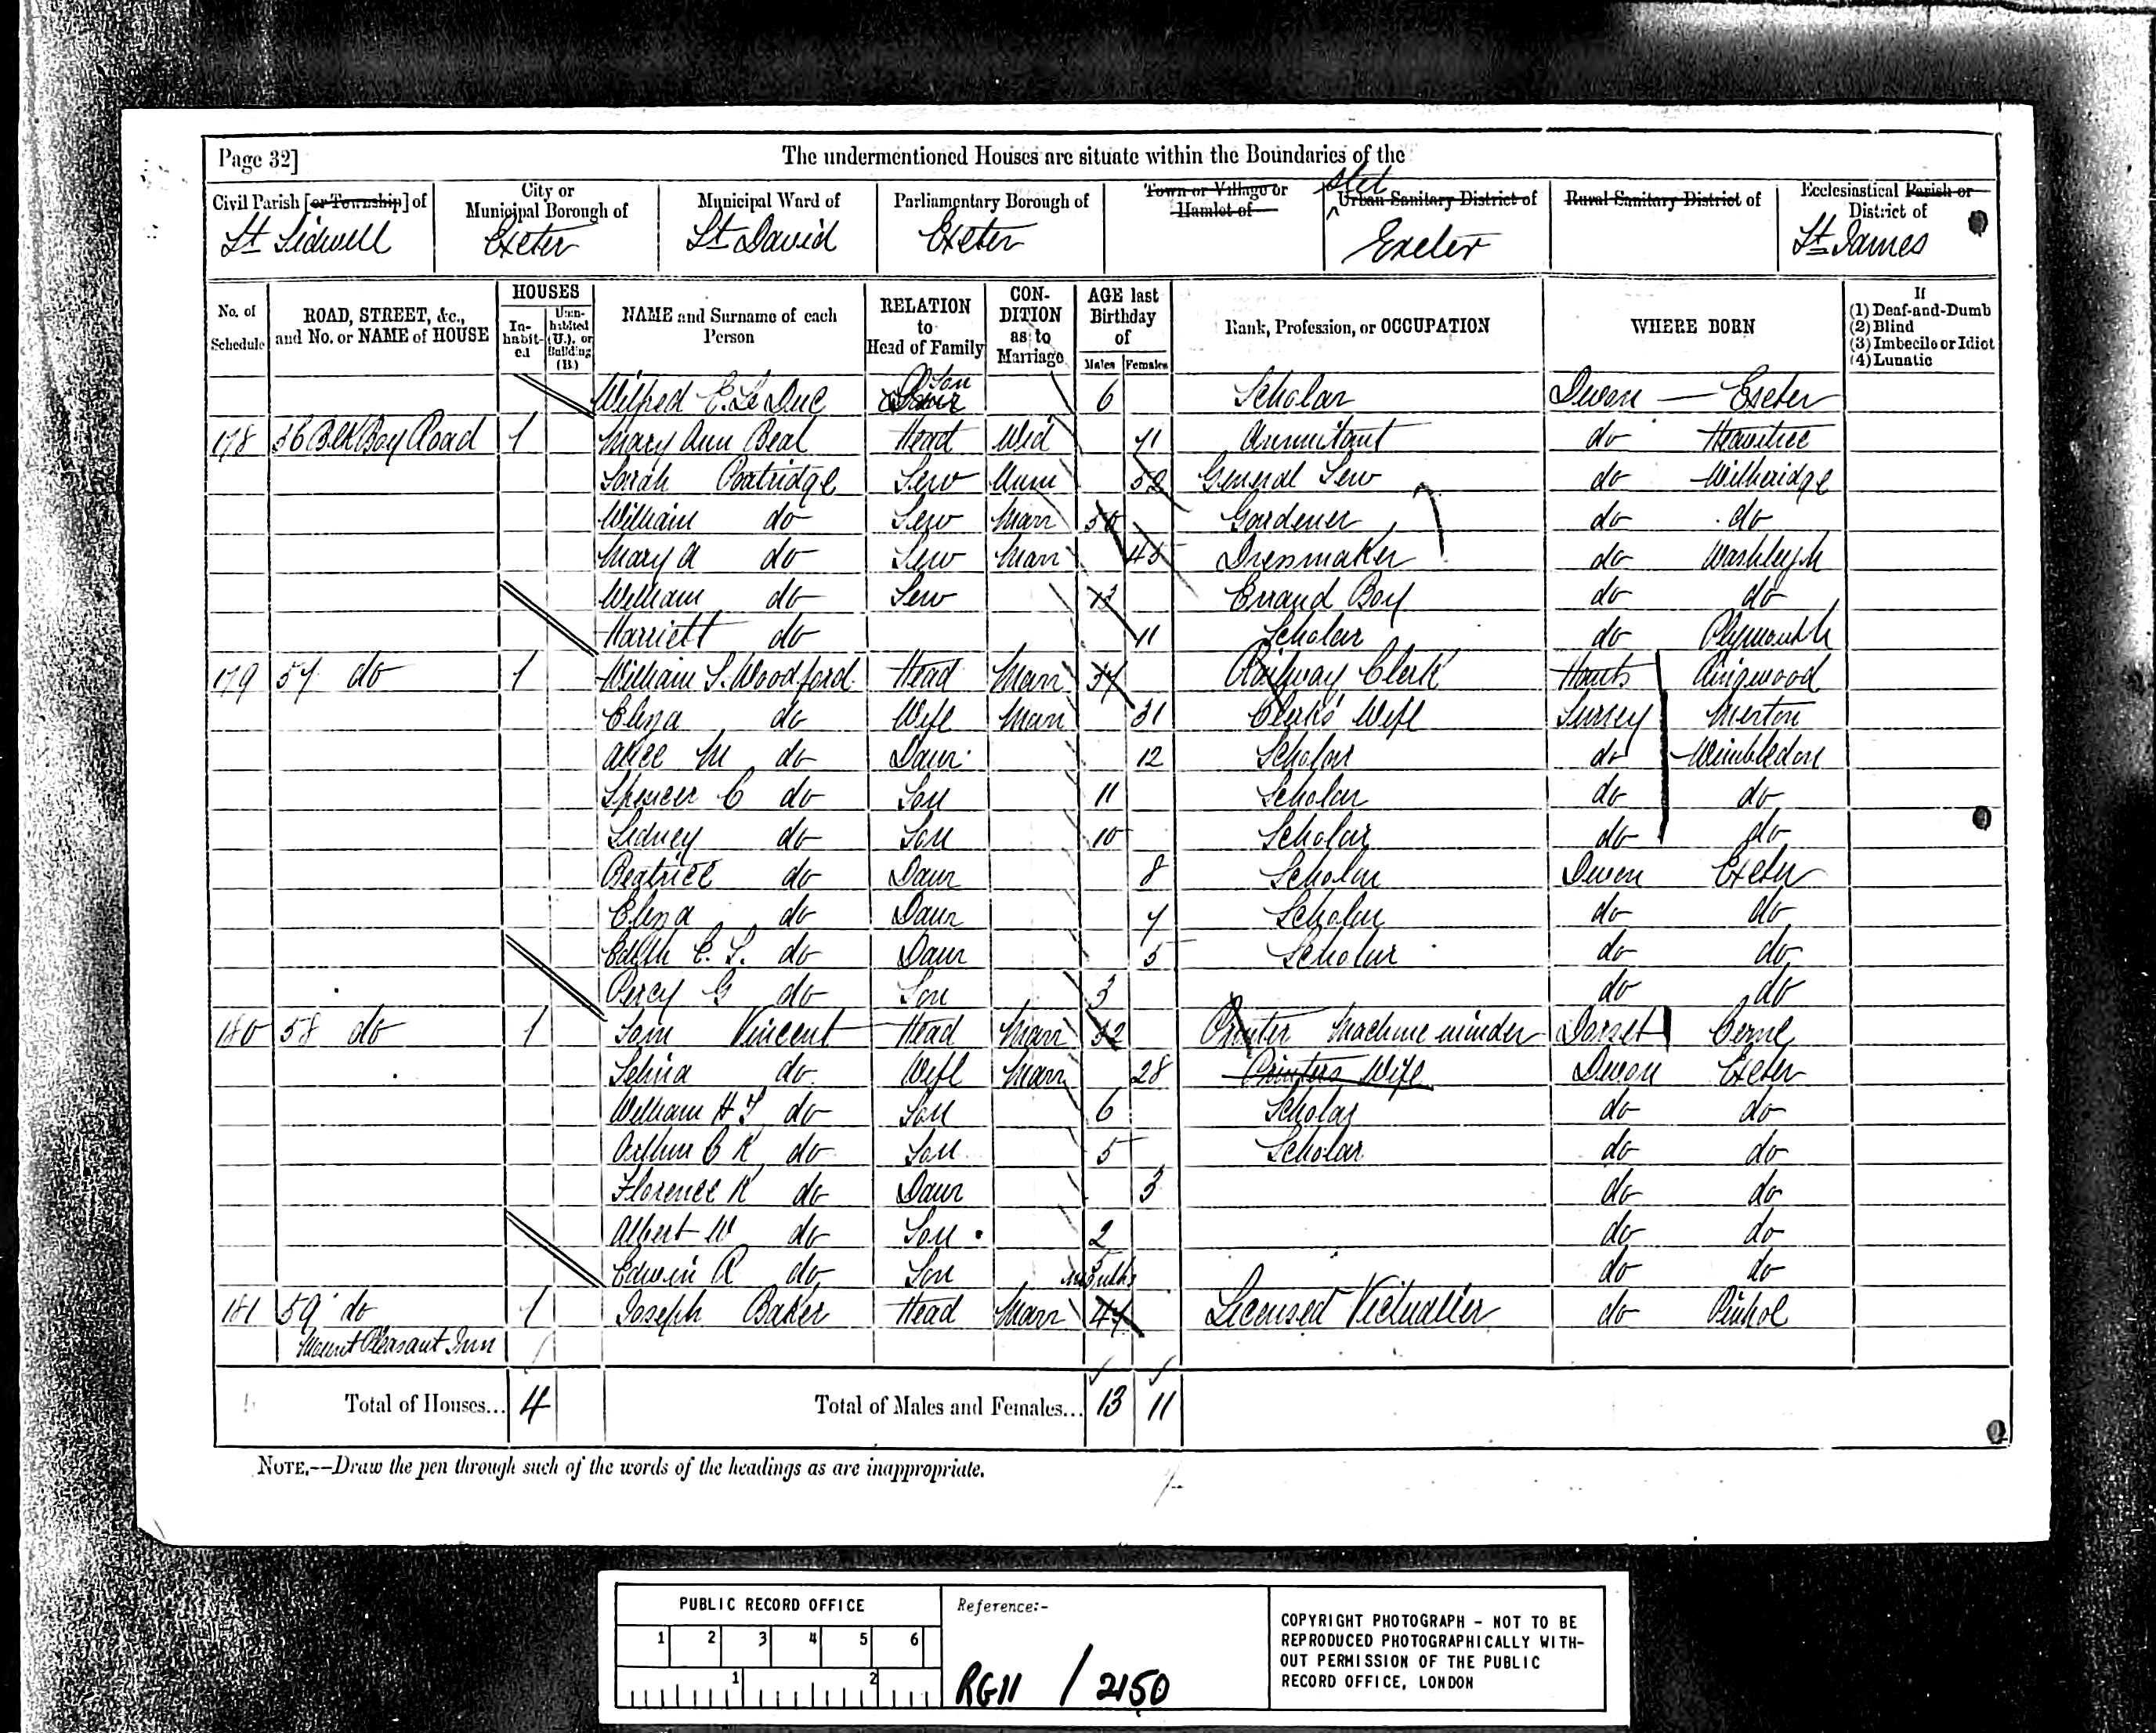 Page 32] The undermentioned Houses are situate within the Boundaries of the
Civil Parish [or Township] of City or Municipal Borough of Municipal Ward of Parliamentary Borough of Town or Village or Hamlet of stet Urban Sanitary District of Rural Sanitary District of Ecclesiastical Parish or District of
St Sidwell Exeter St David Exeter Exeter St James
No. of Schedule ROAD, STREET, &c., and No. or NAME of HOUSE HOUSES In-habit-ed Unin-habited (U.), or Building (B.) NAME and Surname of each Person RELATION to Head of Family CON-DITION as to Marriage AGE last Birthday of Males Females Rank, Profession, or OCCUPATION WHERE BORN If (1) Deaf-and-Dumb (2) Blind (3) Imbecile or Idiot (4) Lunatic
Wilfred E. Le Duc Son 6 Scholar Devon — Exeter
178 56 Blk Boy Road 1 Mary Ann Beal Head Wid 71 Annuitant do Heavitree
Sarah Partridge Serv Unm 52 General Serv do Witheridge
William do Serv Marr 50 Gardener do do
Mary A do Serv Marr 45 Dressmaker do Washleigh
William do Serv 13 Errand Boy do do
Harriett do 11 Scholar do Plymouth
179 57 do 1 William S. Woodford Head Marr 37 Railway Clerk Hants Ringwood
Eliza do Wife Marr 31 Clerks' Wife Surrey Merton
Alice M do Daur 12 Scholar do Wimbledon
Spencer C do Son 11 Scholar do do
Sidney do Son 10 Scholar do do
Beatrice do Daur 8 Scholar Devon Exeter
Eliza do Daur 7 Scholar do do
Edith E. S. do Daur 5 Scholar do do
Percy G do Son 3 do do
180 58 do 1 Sam Vincent Head Marr 32 Printer Machine minder Dorset Cerne
Selina do Wife Marr 28 Printers Wife Devon Exeter
William H T do Son 6 Scholar do do
Arthur C K do Son 5 Scholar do do
Florence K do Daur 3 do do
Albert W do Son 2 do do
Edwin R do Son months do do
181 59 do 1 Joseph Baker Head Marr 47 Licensed Victualler do Pinhol
Mount Pleasant Inn
Total of Houses... 4 Total of Males and Females... 13 11
NOTE.—Draw the pen through such of the words of the headings as are inappropriate.
PUBLIC RECORD OFFICE
1 2 3 4 5 6
1 2
Reference:-
RG11 / 2150
COPYRIGHT PHOTOGRAPH - NOT TO BE
REPRODUCED PHOTOGRAPHICALLY WITH-
OUT PERMISSION OF THE PUBLIC
RECORD OFFICE, LONDON